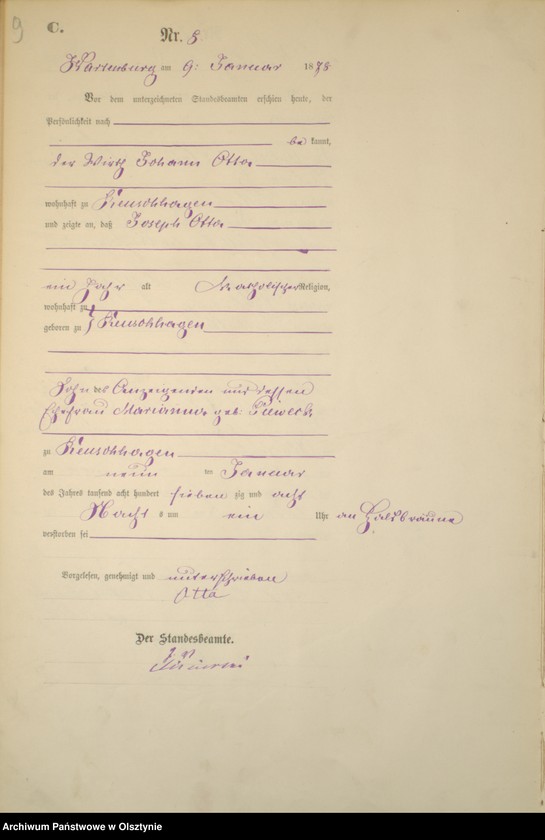 9
C.
Nr. 8
Wartenburg am 9. Januar 1878
Vor dem unterzeichneten Standesbeamten erschien heute, der
Persönlichkeit nach
be kannt,
der Wirth Johann Otta
wohnhaft zu Reuschhagen
und zeigte an, daß Joseph Otta
ein Jahr alt katholischer Religion,
wohnhaft zu
geboren zu Reuschhagen
Sohn des Anzeigenden und dessen
Ehefrau Marianna geb.
zu Reuschhagen
am neun ten Januar
des Jahres tausend acht hundert sieben zig und acht
Nacht s um ein Uhr an Halsbräune
verstorben sei
Vorgelesen, genehmigt und unterschrieben
Otta
Der Standesbeamte.
Archiwum Państwowe w Olsztynie